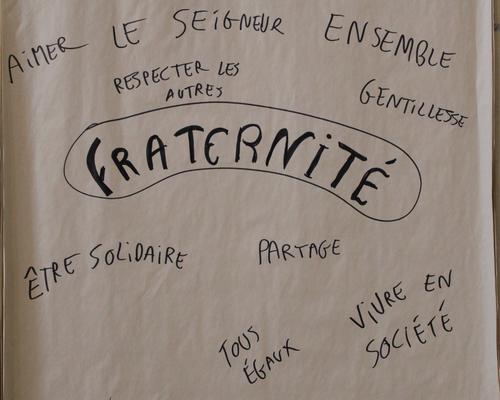 AiMER LE SEiGNEUR ENSEMBLE
RESPECTER LES
AUTRES
GENTiLLESSE
FRATERNiTÉ
ÊTRE SOLiDAIRE
PARTAGE
TOUS
ÉGAUX
ViVRE EN
SOCiÉTÉ